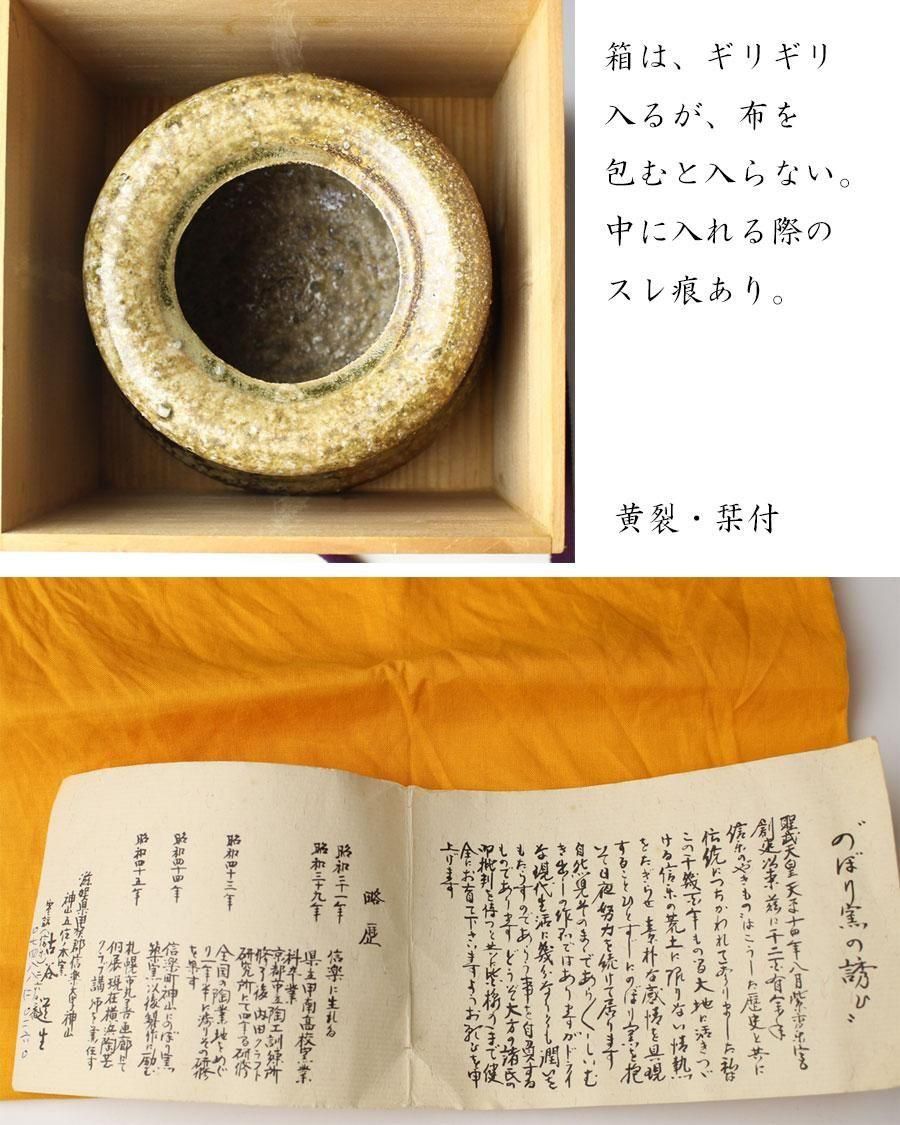 箱は、ギリギリ
入るが、布を
包むと入らない。
中に入れる際の
スレ痕あり。
黄裂・栞付
"のぼり窯の誘ひ"
聖武天皇天平十四年八月紫香楽宮
創建以来 茲に千二百有余年
信楽のやきものはこうした歴史と共に
伝統につちかわれてまいりました 私は
この千幾百年もの古る大地に活きつい
ける信楽の荒土に限りない情熱
をたぎらせ 素朴な感情を具現
することひとすじにのぼり窯を抱
いて日夜努力を続けて居ります
自然児そのまゝであらくしいむ
き出しの作品ではありますがドライ
な現代生活に幾分なりとも潤いを
もたらすのであろう事を自負する
ものであります どうぞ大方の諸氏の
御批判を待つと共に皆様のまで健
全にお育て下さいますようお祈び申
上げます
略歴
昭和二十一年 信楽に生れる
昭和三十九年 県立甲南高校窯業
科卒業
京都市立陶工訓練所
修了後 内田クラフト
研究所にて四ケ年研修
昭和四十三年 全国の陶業地をめぐ
り一年半渉りその研修
を果す
昭和四十四年 信楽町神山にのぼり窯
築窯 以後製作に励む
昭和四十五年 札幌市丸善画廊にて
個展 現在横浜陶芸
クラブ講師を兼任す
滋賀県甲賀郡信楽町神山